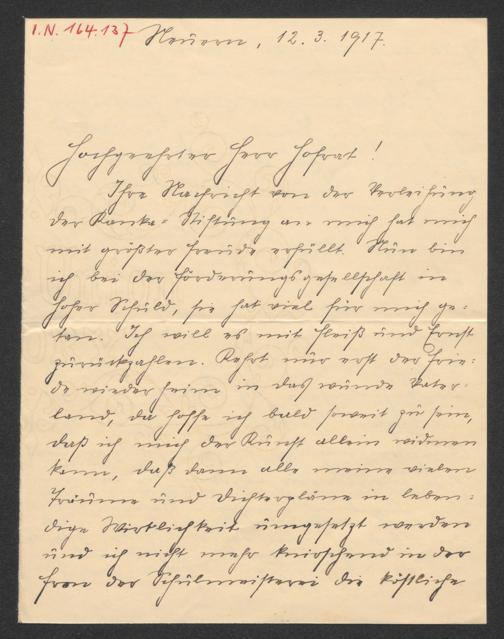 I.N. 164.137
Neuern, 12.3.1917.
Hochgeehrter Herr Hofrat!
Ihre Nachricht von der Verleihung
der Ranka-Stiftung an mich hat mich
mit größter Freude erfüllt. Nun bin
ich bei der Förderungsgesellschaft in
hoher Schuld, sie hat viel für mich ge-
tan. Ich will es mit Fleiß und Ernst
zurückzahlen. Kehrt nur erst der Frie-
de wieder heim in das wunde Vater-
land, da hoffe ich bald soweit zu sein,
daß ich mich der Kunst allein widmen
kann, daß dann alle meine vielen
Träume und Dichterpläne in leben-
dige Wirklichkeit umgesetzt werden
und ich nicht mehr knirschend in der
Fron der Schulmeisterei die köstliche